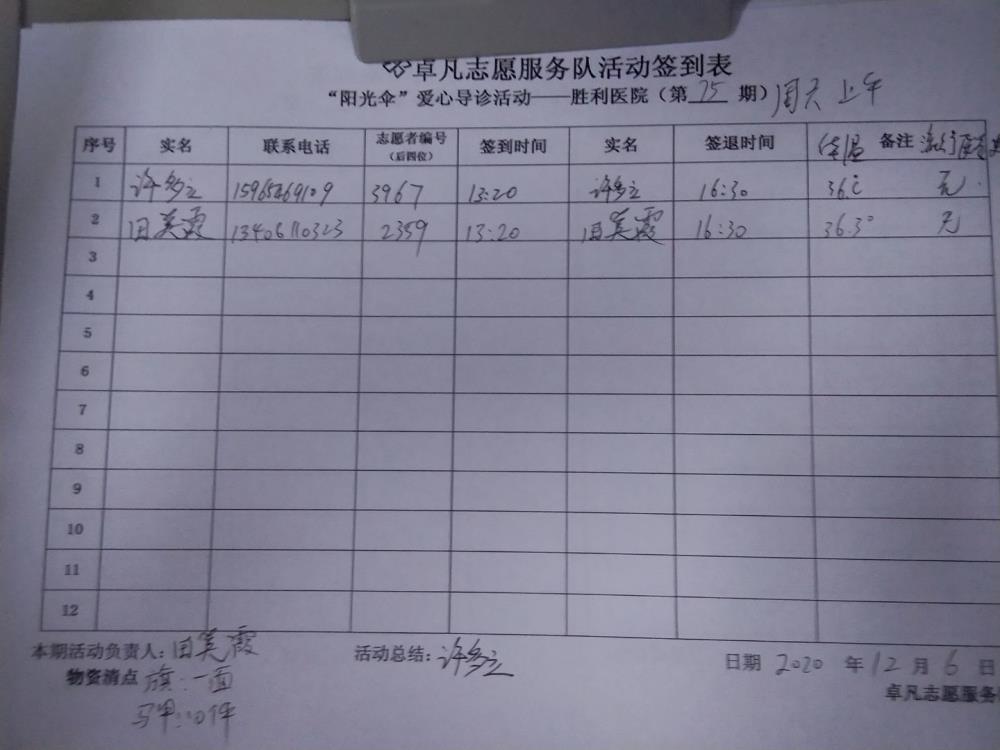 卓凡志愿服务队活动签到表
“阳光伞”爱心导诊活动——胜利医院（第 75 期）周天 上午
序号 实名 联系电话 志愿者编号（后四位） 签到时间 实名 签退时间 体温 备注
1 许多立 15965269109 3967 13:20 许多立 16:30 36℃ 无
2 田美霞 13406110323 2359 13:20 田美霞 16:30 36.3° 无
3
4
5
6
7
8
9
10
11
12
本期活动负责人：田美霞 活动总结：许多立 日期 2020 年 12 月 6 日
物资清点 旗：一面 卓凡志愿服务
马甲：10件